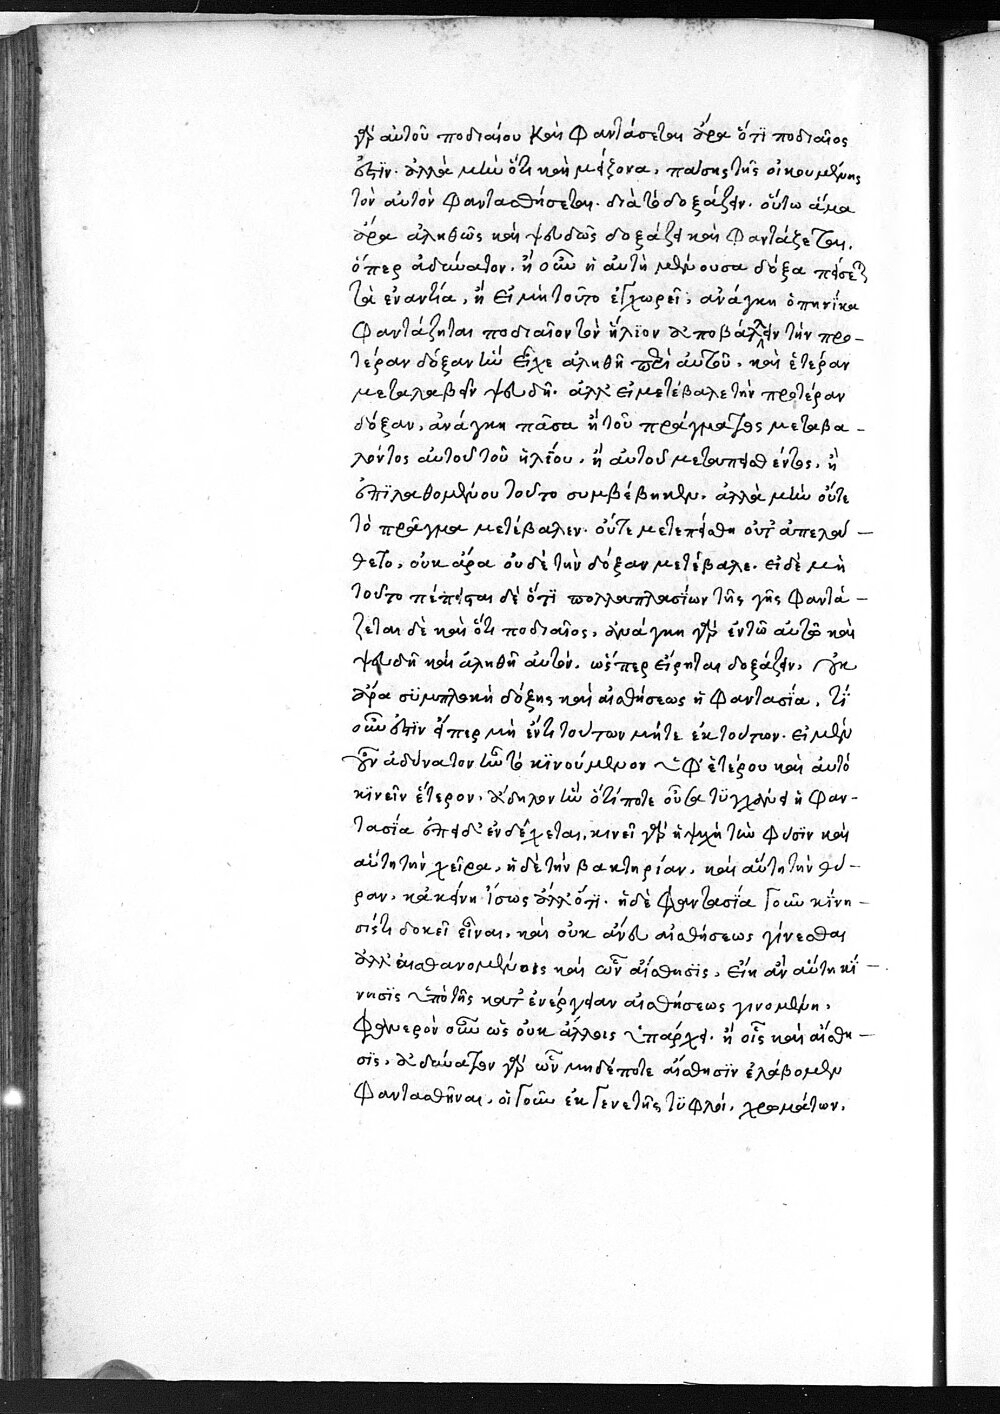 γὰρ αὐτοῦ ποδιαίου καὶ φαντάσεται ἄρα ὅτι ποδιαῖος
ἐστίν. ἀλλὰ μὴν ὅτι καὶ μείζονα, πάσης τῆς οἰκουμένης
τὸν αὐτὸν φαντασθήσεται. διὰ τὸ δοξάζειν. οὕτω ἅμα
ἄρα ἀληθῶς καὶ ψευδῶς δοξάζει καὶ φαντάζεται,
ὅπερ ἀδύνατον. ἢ οὖν ἡ αὐτὴ μένουσα δόξα πείσεται
τὰ ἐναντία, ἢ εἰ μὴ τοῦτο ἐγχωρεῖ, ἀνάγκη ὁπηνίκα
φαντάζηται ποδιαῖον τὸν ἥλιον ἀποβάλλειν τὴν προ-
τέραν δόξαν ἣν εἶχε ἀληθῆ περὶ αὐτοῦ, καὶ ἑτέραν
μεταλαβεῖν ψευδῆ. ἀλλ' εἰ μετέβαλε τὴν προτέραν
δόξαν, ἀνάγκη πᾶσα ἢ τοῦ πράγματος μεταβα-
λόντος αὐτοῦ τοῦ ἡλίου, ἢ αὐτοῦ μεταπεισθέντος, ἢ
ἐπιλαθομένου τοῦτο συμβέβηκεν. ἀλλὰ μὴν οὔτε
τὸ πρᾶγμα μετέβαλεν. οὔτε μετεπείσθη οὔτ' ἀπελά-
θετο, οὐκ ἄρα οὐδὲ τὴν δόξαν μετέβαλε. εἰ δὲ μὴ
τοῦτο πέπεισται δὲ ὅτι πολλαπλασίων τῆς γῆς φαντά-
ζεται δὲ καὶ ὅτι ποδιαῖος, ἀνάγκη γὰρ ἐν τῶ αὐτῶ καὶ
ψευδῆ καὶ ἀληθῆ αὐτόν. ὥσπερ εἴρηται δοξάζειν, οὐκ
ἄρα συμπλοκὴ δόξης καὶ αἰσθήσεως ἡ φαντασία, τί
οὖν ἐστὶν εἴπερ μὴ ἕν τι τούτων μήτε ἐκ τούτων. εἰ μὲν
οὖν ἀδύνατον ἦν τὸ κινούμενον ὑφ' ἑτέρου καὶ αὐτὸ
κινεῖν ἕτερον, ἄδηλον ἦν ὅτι ποτε οὖσα τυγχάνει ἡ φαν-
τασία ἐπεὶ δ' ἐνδέχεται, κινεῖ γὰρ ἡ ψυχὴ τὴν φύσιν καὶ
αὕτη τὴν χεῖρα, ἡ δὲ τὴν βακτηρίαν, καὶ αὕτη τὴν θύ-
ραν, κἀκείνη ἴσως ἄλλ' ὅτι. ἡ δὲ φαντασία γοῦν κίνη-
σίς τι δοκεῖ εἶναι, καὶ οὐκ ἄνευ αἰσθήσεως γίνεσθαι
ἀλλ' αἰσθανομένοις καὶ ὧν αἴσθησις, εἴη ἂν αὕτη κί-
νησις ὑπὸ τῆς κατ' ἐνέργειαν αἰσθήσεως γινομένη,
φανερὸν οὖν ὡς οὐκ ἄλλοις ὑπάρχει. ἢ οἷς καὶ αἴσθη-
σις, ἀδύνατον γὰρ ὧν μηδέποτε αἴσθησιν ἐλάβομεν
φαντασθῆναι, οἱ γοῦν ἐκ γενετῆς τυφλοὶ, χρωμάτων,